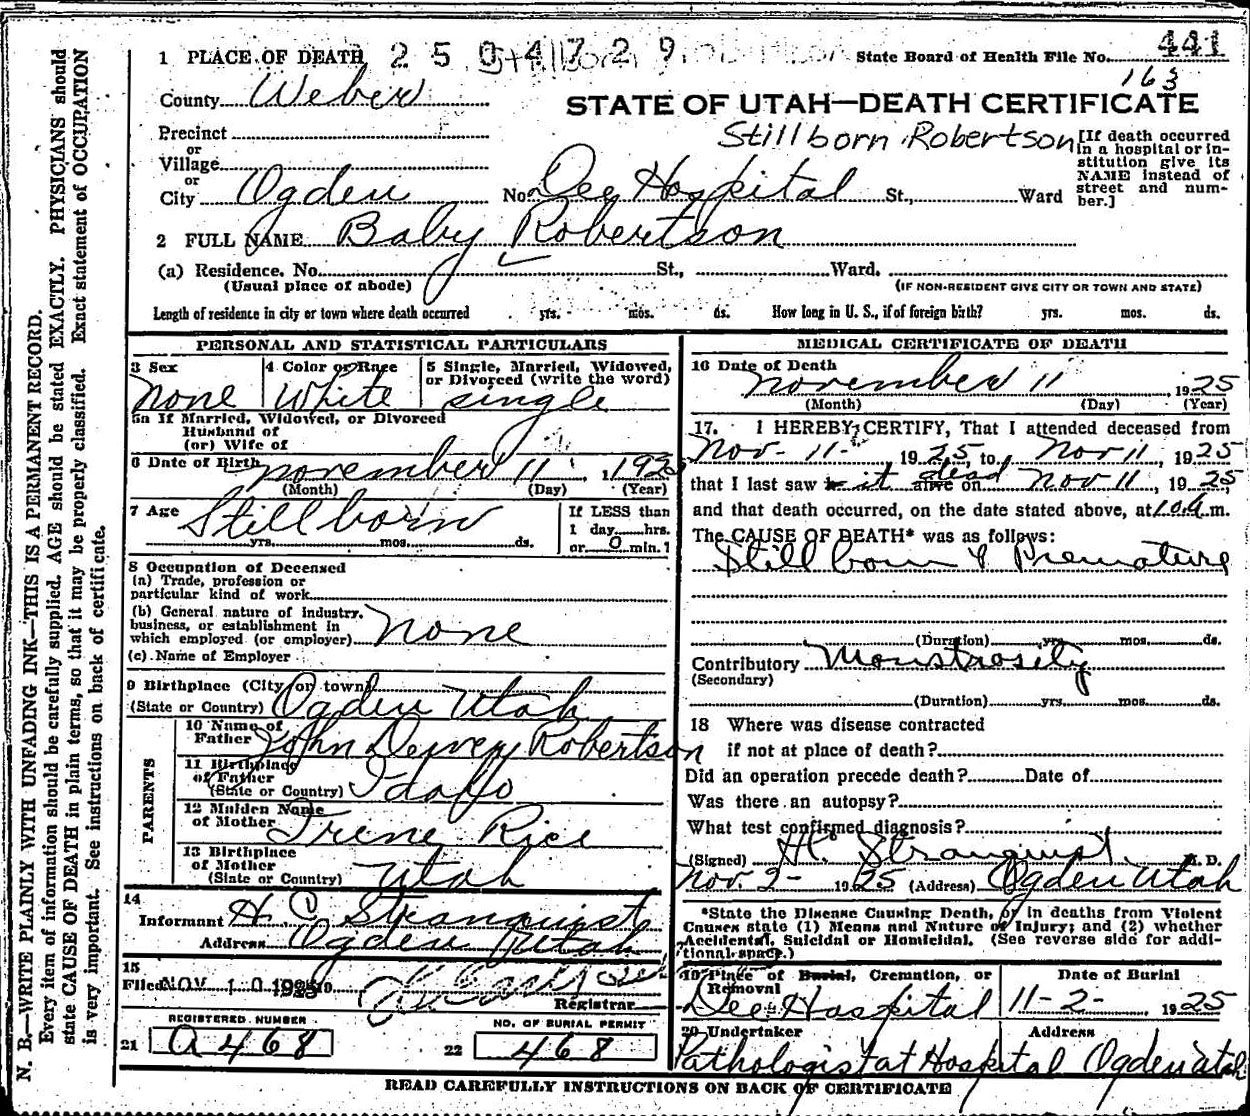 1 PLACE OF DEATH 2504729
State Board of Health File No. 441
163
County Weber
STATE OF UTAH—DEATH CERTIFICATE
Precinct
Stillborn Robertson
[If death occurred in a hospital or institution give its NAME instead of street and number.]
or
Village
or
City Ogden No. Dee Hospital St., Ward
2 FULL NAME Baby Robertson
(a) Residence. No. St., Ward.
(Usual place of abode) (IF NON-RESIDENT GIVE CITY OR TOWN AND STATE)
Length of residence in city or town where death occurred yrs. mos. ds. How long in U. S., if of foreign birth? yrs. mos. ds.
PERSONAL AND STATISTICAL PARTICULARS
3 Sex 4 Color or Race 5 Single, Married, Widowed, or Divorced (write the word)
None White single
5a If Married, Widowed, or Divorced
Husband of
(or) Wife of
6 Date of Birth november 11, 1925
(Month) (Day) (Year)
7 Age Stillborn
yrs. mos. ds.
If LESS than
1 day hrs.
or 0 min.?
8 Occupation of Deceased
(a) Trade, profession or
particular kind of work
(b) General nature of industry,
business, or establishment in
which employed (or employer) none
(c) Name of Employer
9 Birthplace (City or town)
(State or Country) Ogden Utah
PARENTS
10 Name of
Father John Dewey Robertson
11 Birthplace
of Father
(State or Country) Idaho
12 Maiden Name
of Mother Irene Rice
13 Birthplace
of Mother
(State or Country) Utah
14
Informant H. C Stranquist
Address Ogden Utah
15
Filed NOV 10 1925
Registrar
REGISTERED NUMBER NO. OF BURIAL PERMIT
21 A468 22 468
MEDICAL CERTIFICATE OF DEATH
16 Date of Death
november 11 1925
(Month) (Day) (Year)
17. I HEREBY CERTIFY, That I attended deceased from
Nov - 11 - 1925, to Nov 11, 1925
that I last saw it alive dead on Nov 11, 1925,
and that death occurred, on the date stated above, at 10 a.m.
The CAUSE OF DEATH* was as follows:
Stillborn & Premature
(Duration) yrs. mos. ds.
Contributory Monstrosity
(Secondary)
(Duration) yrs. mos. ds.
18 Where was disease contracted
if not at place of death?
Did an operation precede death? Date of
Was there an autopsy?
What test confirmed diagnosis?
(Signed) H. Stranquist M. D.
Nov. 2- 1925 (Address) Ogden Utah
*State the Disease Causing Death, or in deaths from Violent
Causes state (1) Means and Nature of Injury; and (2) whether
Accidental, Suicidal or Homicidal. (See reverse side for addi-
tional space.)
19 Place of Burial, Cremation, or Date of Burial
Removal
Dee Hospital 11-2- 1925
20 Undertaker Address
Pathologist at Hospital Ogden Utah
READ CAREFULLY INSTRUCTIONS ON BACK OF CERTIFICATE
N. B.—WRITE PLAINLY WITH UNFADING INK—THIS IS A PERMANENT RECORD.
Every item of information should be carefully supplied. AGE should be stated EXACTLY. PHYSICIANS should
state CAUSE OF DEATH in plain terms, so that it may be properly classified. Exact statement of OCCUPATION
is very important. See instructions on back of certificate.